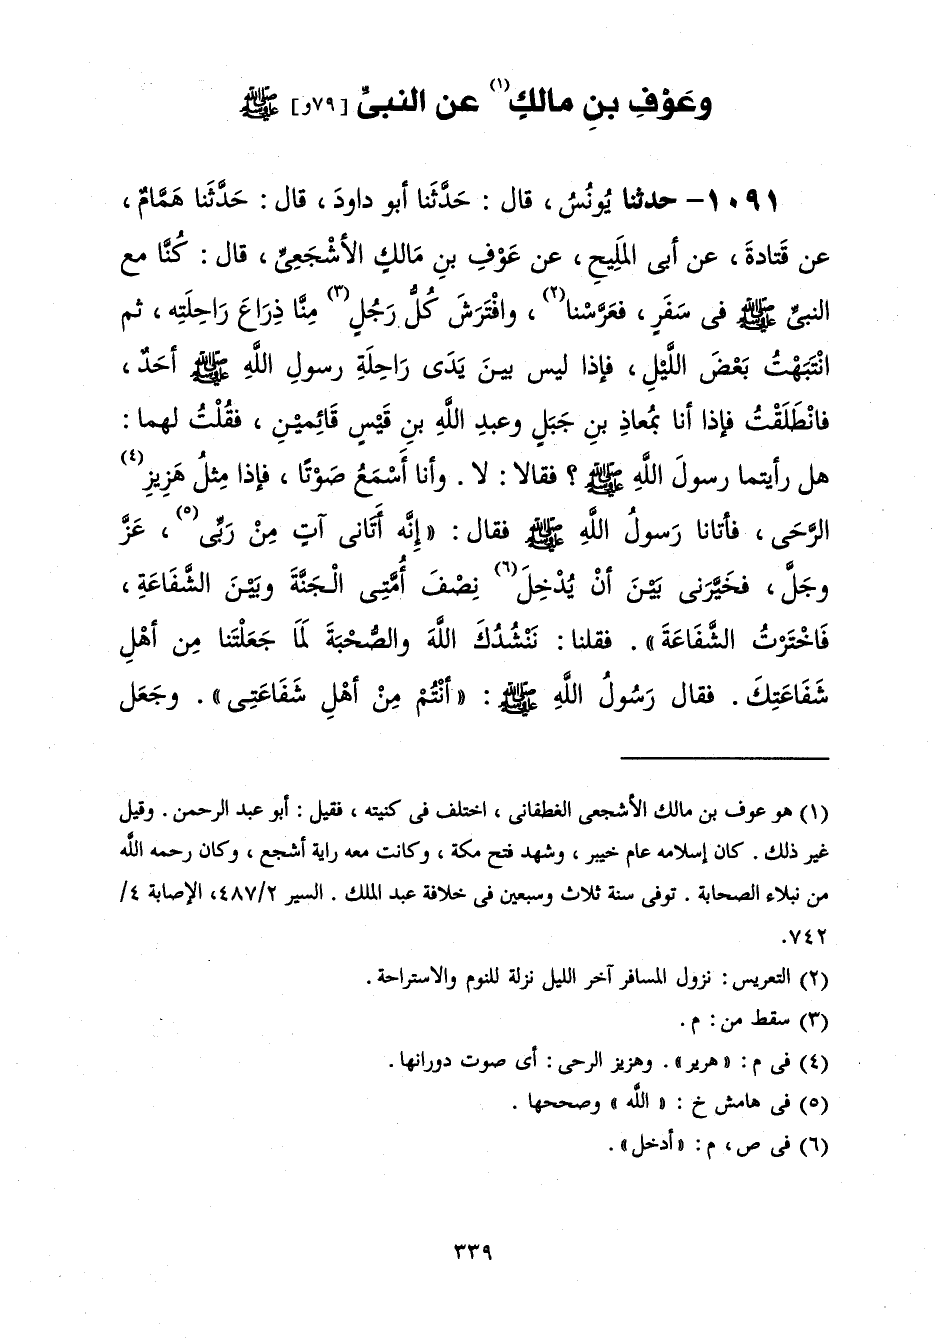 وعَوْفِ بنِ مالكٍ(١) عن النبىِّ [٧٩و] ﷺ
١٠٩١- حدثنا يُونُسُ ، قال : حَدَّثَنا أبو داودَ ، قال : حَدَّثَنا هَمَّامٌ ،
عن قَتادةَ ، عن أبى المَلِيحِ ، عن عَوْفِ بنِ مَالكٍ الأشْجَعِىِّ ، قال : كُنَّا مع
النبىِّ ﷺ فى سَفَرٍ ، فعَرَّسْنا(٢) ، وافْتَرَشَ كُلُّ رَجُلٍ(٣) مِنَّا ذِرَاعَ رَاحِلَتِه ، ثم
انْتَبَهْتُ بَعْضَ اللَّيْلِ ، فإذا ليس بينَ يَدَى رَاحِلَةِ رسولِ اللَّهِ ﷺ أحَدٌ ،
فانْطَلَقْتُ فإذا أنا بمُعاذِ بنِ جَبَلٍ وعبدِ اللَّهِ بنِ قَيْسٍ قَائِميْنِ ، فقُلْتُ لهما :
هل رأيتما رسولَ اللَّهِ ﷺ ؟ فقالا : لا . وأنا أَسْمَعُ صَوْتًا ، فإذا مِثلُ هَزِيزِ(٤)
الرَّحَى ، فأتانا رَسولُ اللَّهِ ﷺ فقال : « إِنَّه أَتَانى آتٍ مِنْ رَبِّى(٥) ، عَزَّ
وجَلَّ ، فخَيَّرَنى بَيْنَ أنْ يُدْخِلَ(٦) نِصْفَ أُمَّتِى الْجَنَّةَ وبَيْنَ الشَّفَاعَةِ ،
فَاخْتَرْتُ الشَّفَاعَةَ » . فقلنا : نَنْشُدُكَ اللَّهَ والصُّحْبَةَ لَمَا جَعَلْتَنا مِن أهْلِ
شَفَاعَتِكَ . فقال رَسُولُ اللَّهِ ﷺ : « أنْتُمْ مِنْ أهْلِ شَفَاعَتِى » . وجَعَل
(١) هو عوف بن مالك الأشجعى الغطفانى ، اختلف فى كنيته ، فقيل : أبو عبد الرحمن . وقيل
غير ذلك . كان إسلامه عام خيبر ، وشهد فتح مكة ، وكانت معه راية أشجع ، وكان رحمه اللَّه
من نبلاء الصحابة . توفى سنة ثلاث وسبعين فى خلافة عبد الملك . السير ٤٨٧/٢، الإصابة ٤/
٧٤٢.
(٢) التعريس : نزول المسافر آخر الليل نزلة للنوم والاستراحة .
(٣) سقط من : م .
(٤) فى م : « هرير » . وهزيز الرحى : أى صوت دورانها .
(٥) فى هامش خ : « اللَّه » وصححها .
(٦) فى ص ، م : « أدخل » .
٣٣٩